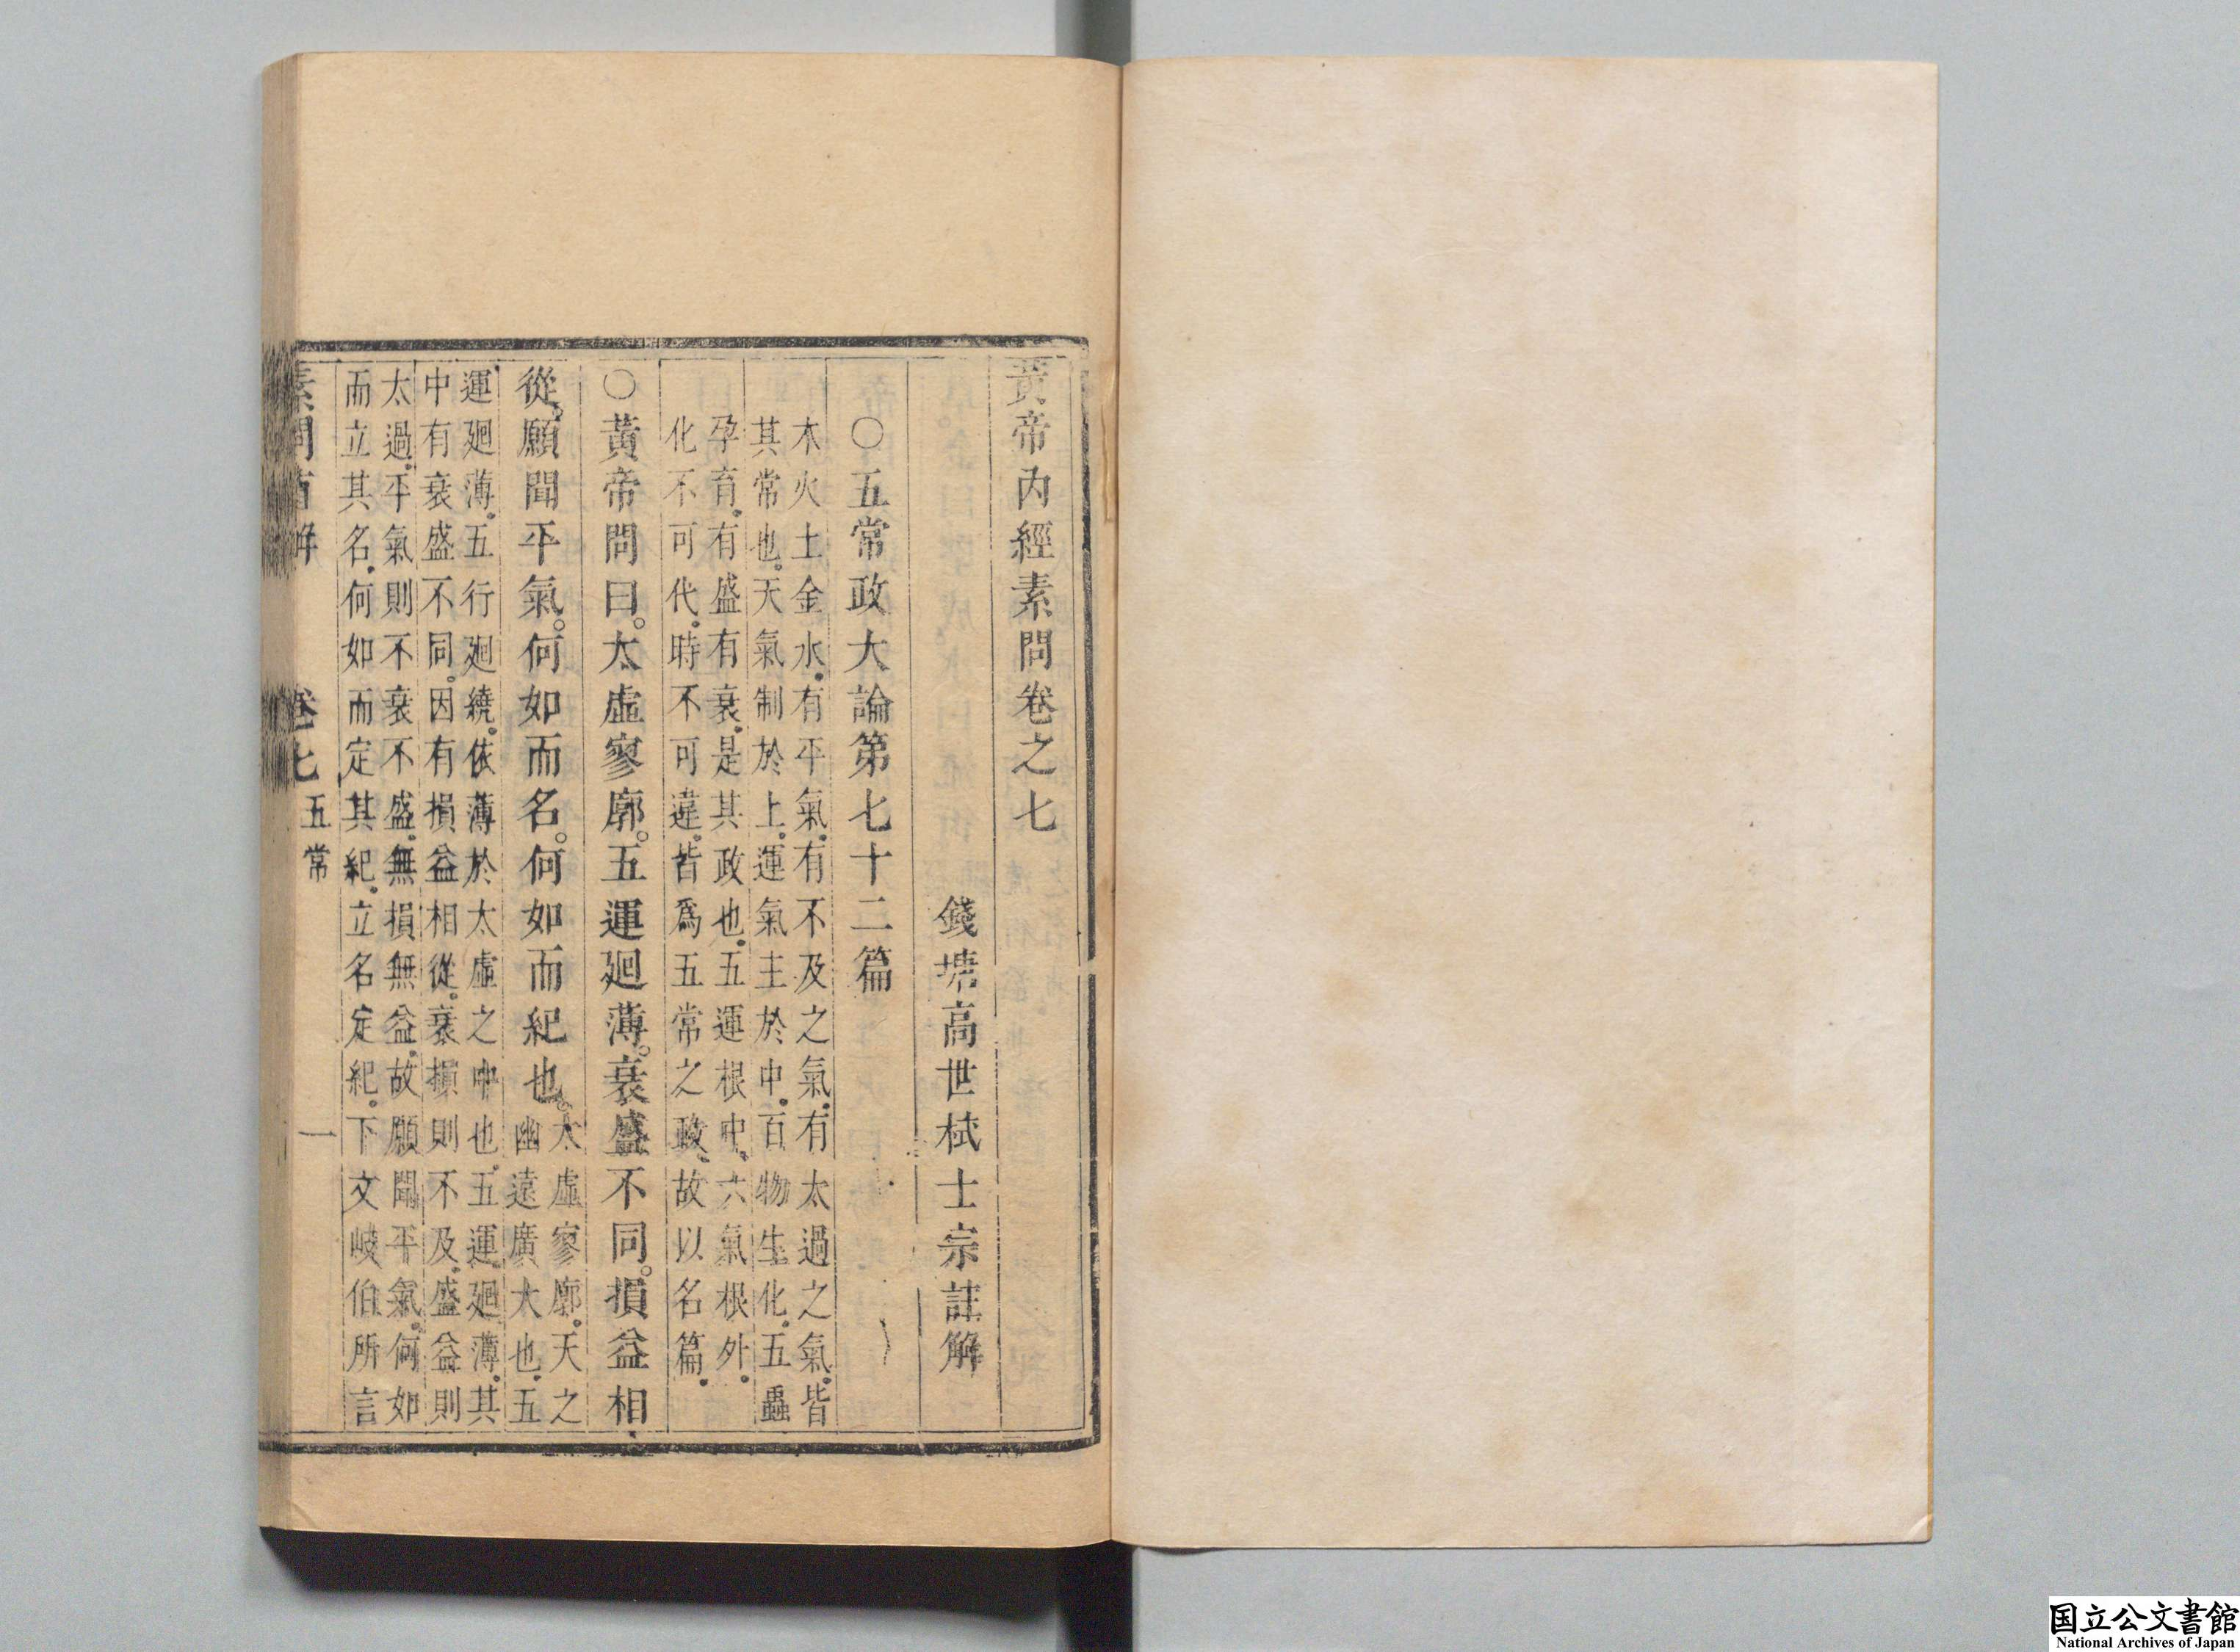 黃帝內經素問卷之七
錢塘高世栻士宗註解
○五常政大論第七十二篇
木火土金水有平氣有不及之氣有太過之氣皆
其常也天氣制於上運氣主於中百物生化五蟲
孕育有盛有衰是其政也五運根中六氣根外
化不可代時不可違皆爲五常之政故以名篇
○黃帝問曰太虛寥廓五運廻薄衰盛不同損益相
從願聞平氣何如而名何如而紀也
太虛寥廓天之
幽遠廣大也五
運廻薄五行廻繞依薄於太虛之中也五運廻薄其
中有衰盛不同因有損益相從衰損則不及盛益則
太過平氣則不衰不盛無損無益故願聞平氣何如
而立其名何如而定其紀立名定紀下文岐伯所言
素問直解 卷七 五常 一
国立公文書館
National Archives of Japan